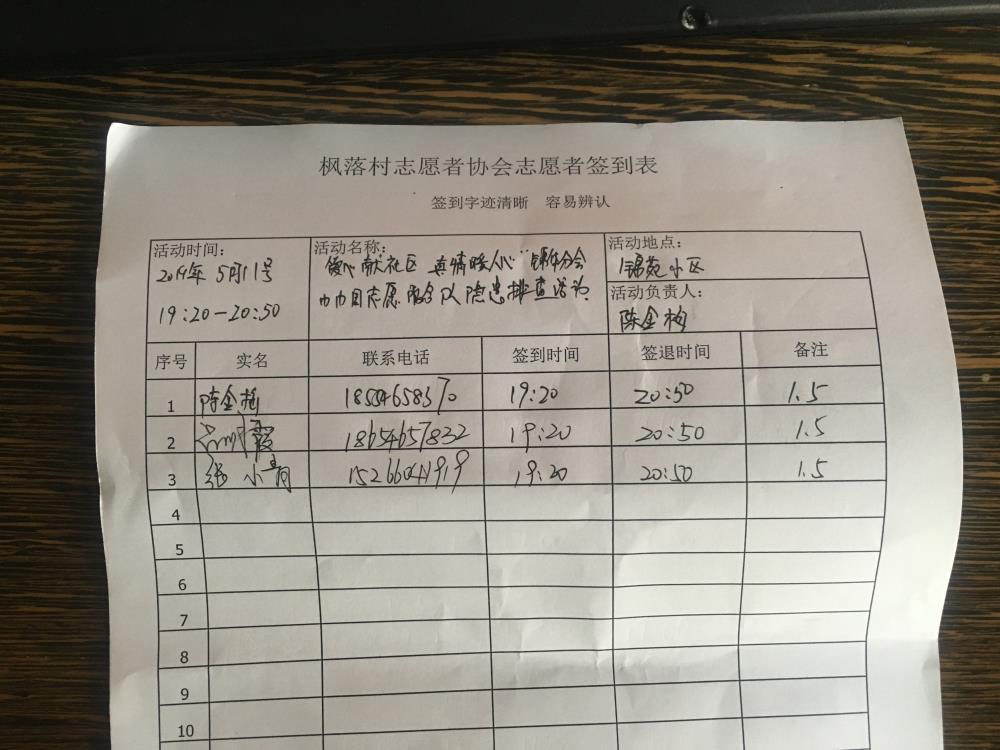 枫落村志愿者协会志愿者签到表
签到字迹清晰 容易辨认
活动时间：
2019年 5月11号
19:20-20:50
活动名称：
爱心献社区 真情暖人心"锦苑分会
巾帼志愿服务队隐患排查活动
活动地点：
锦苑小区
活动负责人：
陈金梅
序号 实名 联系电话 签到时间 签退时间 备注
1 陈金梅 19:20 20:50 1.5
2 霞 18654657832 19:20 20:50 1.5
3 张小青 15266041919 19:20 20:50 1.5
4
5
6
7
8
9
10